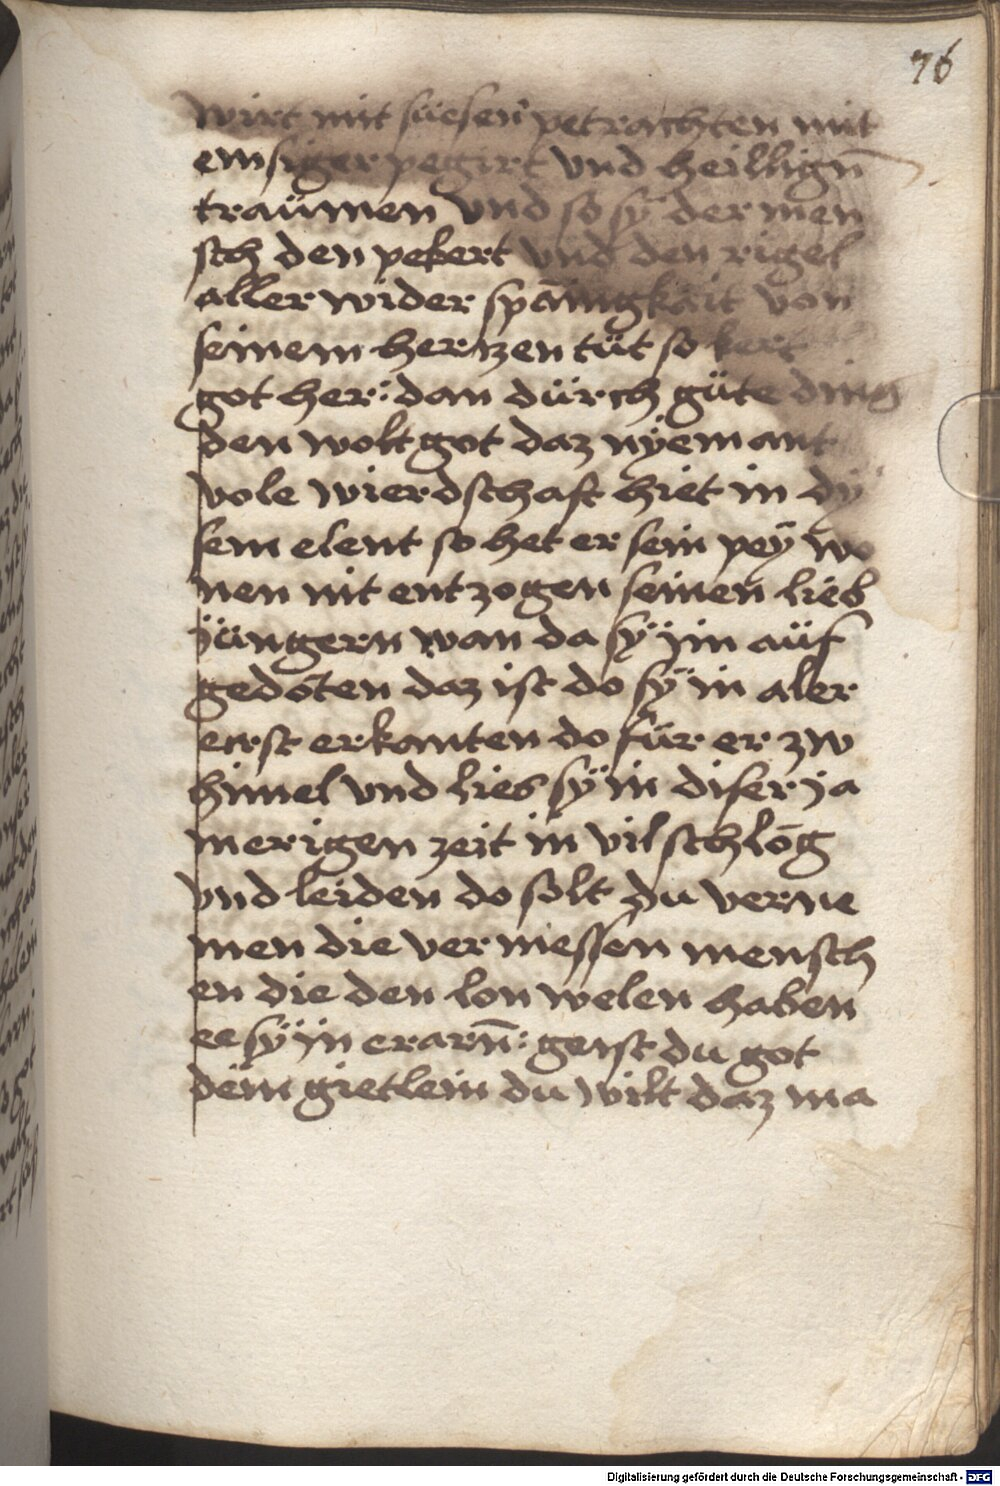 76
wirt mit süesen petrachten mit
emsiger pegirt vnd heilligñ
traümen vnd so sÿ der men
sch den pekert vnd den rigel
aller wider spānigkait von
seinem herczen tüt so kert
got her: dan dürch güte ding
den wolt got daz nÿemant
vole wierdschaft hiet in dÿ
sem elent so het er sein peÿ wo
nen nit entzogen seinen lieb
jüngern wan da sÿ jm aüf
gedōten daz ist do sÿ in aler
erst erkanten do für er zw
himel vnd lies sÿ in diser ja
merigen zeit in vil schlōg
vnd leiden do solt du verne
men die vermessen mensch
en die den lon welen haben
ee sÿ jn erarñ: geist du got
dēm gietlein du wilt daz ma
Digitalisierung gefördert durch die Deutsche Forschungsgemeinschaft - DFG